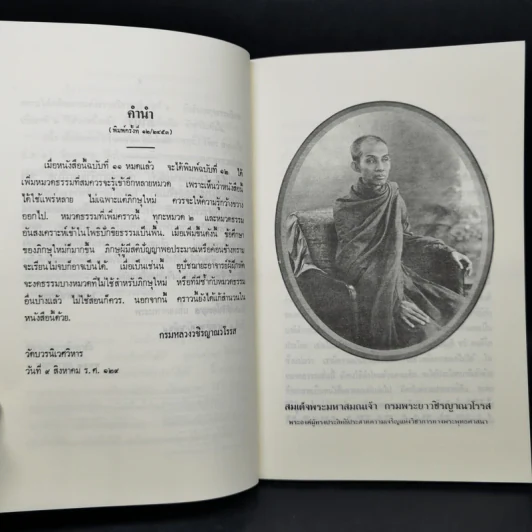 คำนำ
(พิมพ์ครั้งที่ ๑๒/๒๔๕๓)
เมื่อหนังสือนี้ฉบับที่ ๑๑ หมดแล้ว จะได้พิมพ์ฉบับที่ ๑๒ ได้
เพิ่มหมวดธรรมที่สมควรจะรู้เข้าอีกหลายหมวด เพราะเห็นว่าหนังสือนี้
ได้ใช้แพร่หลาย ไม่เฉพาะแต่ภิกษุใหม่ ควรจะให้ความรู้กว้างขวาง
ออกไป. หมวดธรรมที่เพิ่มคราวนี้ ทุกะหมวด ๒ และหมวดธรรม
อันสงเคราะห์เข้าในโพธิปักขิยธรรมเป็นพื้น. เมื่อเพิ่มขึ้นดังนี้ ข้อศึกษา
ของภิกษุใหม่ก็มากขึ้น ภิกษุผู้มีสติปัญญาพอประมาณหรือค่อนข้างทราม
จะเรียนไม่จบก็อาจเป็นได้. เมื่อเป็นเช่นนี้ อุปัชฌายะอาจารย์ผู้ฝึกหัด
จะงดธรรมบางหมวดที่ไม่ใช้สำหรับภิกษุใหม่ หรือที่มีซ้ำกับหมวดธรรม
อื่นบ้างแล้ว ไม่ใช้สอนก็ควร. นอกจากนี้ คราวนี้ยังได้แก้สำนวนใน
หนังสือนี้ด้วย.
กรมหลวงวชิรญาณวโรรส
วัดบวรนิเวศวิหาร
วันที่ ๙ สิงหาคม ร. ศ. ๑๒๙
สมเด็จพระมหาสมณเจ้า กรมพระยาวชิรญาณวโรรส